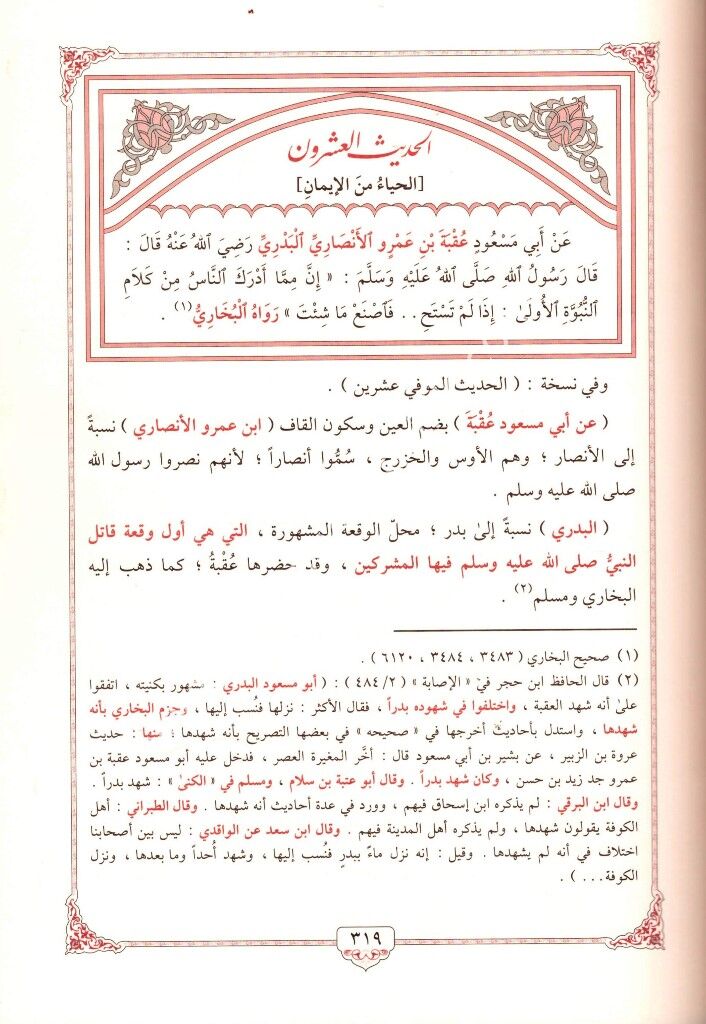 الحديث العشرون
[الحياءُ منَ الإيمانِ]
عَنْ أَبِي مَسْعُودٍ عُقْبَةَ بْنِ عَمْرٍو ٱلأَنْصَارِيِّ ٱلْبَدْرِيِّ رَضِيَ ٱللهُ عَنْهُ قَالَ :
قَالَ رَسُولُ ٱللهِ صَلَّى ٱللهُ عَلَيْهِ وَسَلَّمَ : « إِنَّ مِمَّا أَدْرَكَ ٱلنَّاسُ مِنْ كَلَامِ
ٱلنُّبُوَّةِ ٱلأُولَىٰ : إِذَا لَمْ تَسْتَحِ . . فَٱصْنَعْ مَا شِئْتَ » رَوَاهُ ٱلْبُخَارِيُّ(١) .
وفي نسخة : ( الحديث الموفي عشرين ) .
( عن أبي مسعود عُقْبَةَ ) بضم العين وسكون القاف ( ابن عمرو الأنصاري ) نسبةً
إلى الأنصار ؛ وهم الأوس والخزرج ، سُمُّوا أنصاراً ؛ لأنهم نصروا رسول الله
صلى الله عليه وسلم .
( البدري ) نسبةً إلىٰ بدر ؛ محلّ الوقعة المشهورة ، التي هي أول وقعة قاتل
النبيُّ صلى الله عليه وسلم فيها المشركين ، وقد حضرها عُقْبةُ ؛ كما ذهب إليه
البخاري ومسلم(٢) .
(١) صحيح البخاري ( ٣٤٨٣ ، ٣٤٨٤ ، ٦١٢٠ ) .
(٢) قال الحافظ ابن حجر في « الإصابة » ( ٢/ ٤٨٤ ) : ( أبو مسعود البدري : مشهور بكنيته ، اتفقوا
علىٰ أنه شهد العقبة ، واختلفوا في شهوده بدراً ، فقال الأكثر : نزلها فنُسب إليها ، وجزم البخاري بأنه
شهدها ، واستدل بأحاديث أخرجها في « صحيحه » في بعضها التصريح بأنه شهدها ؛ منها : حديث
عروة بن الزبير ، عن بشير بن أبي مسعود قال : أخَّر المغيرة العصر ، فدخل عليه أبو مسعود عقبة بن
عمرو جد زيد بن حسن ، وكان شهد بدراً . وقال أبو عتبة بن سلام ، ومسلم في « الكنىٰ » : شهد بدراً .
وقال ابن البرقي : لم يذكره ابن إسحاق فيهم ، وورد في عدة أحاديث أنه شهدها . وقال الطبراني : أهل
الكوفة يقولون شهدها ، ولم يذكره أهل المدينة فيهم . وقال ابن سعد عن الواقدي : ليس بين أصحابنا
اختلاف في أنه لم يشهدها . وقيل : إنه نزل ماءً ببدرٍ فنُسب إليها ، وشهد أُحداً وما بعدها ، ونزل
الكوفة . . . ) .
٣١٩